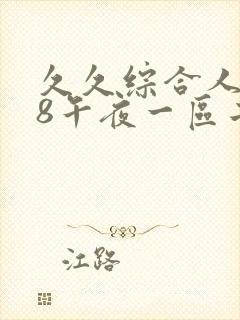 久久綜合人
8午夜一區
江路